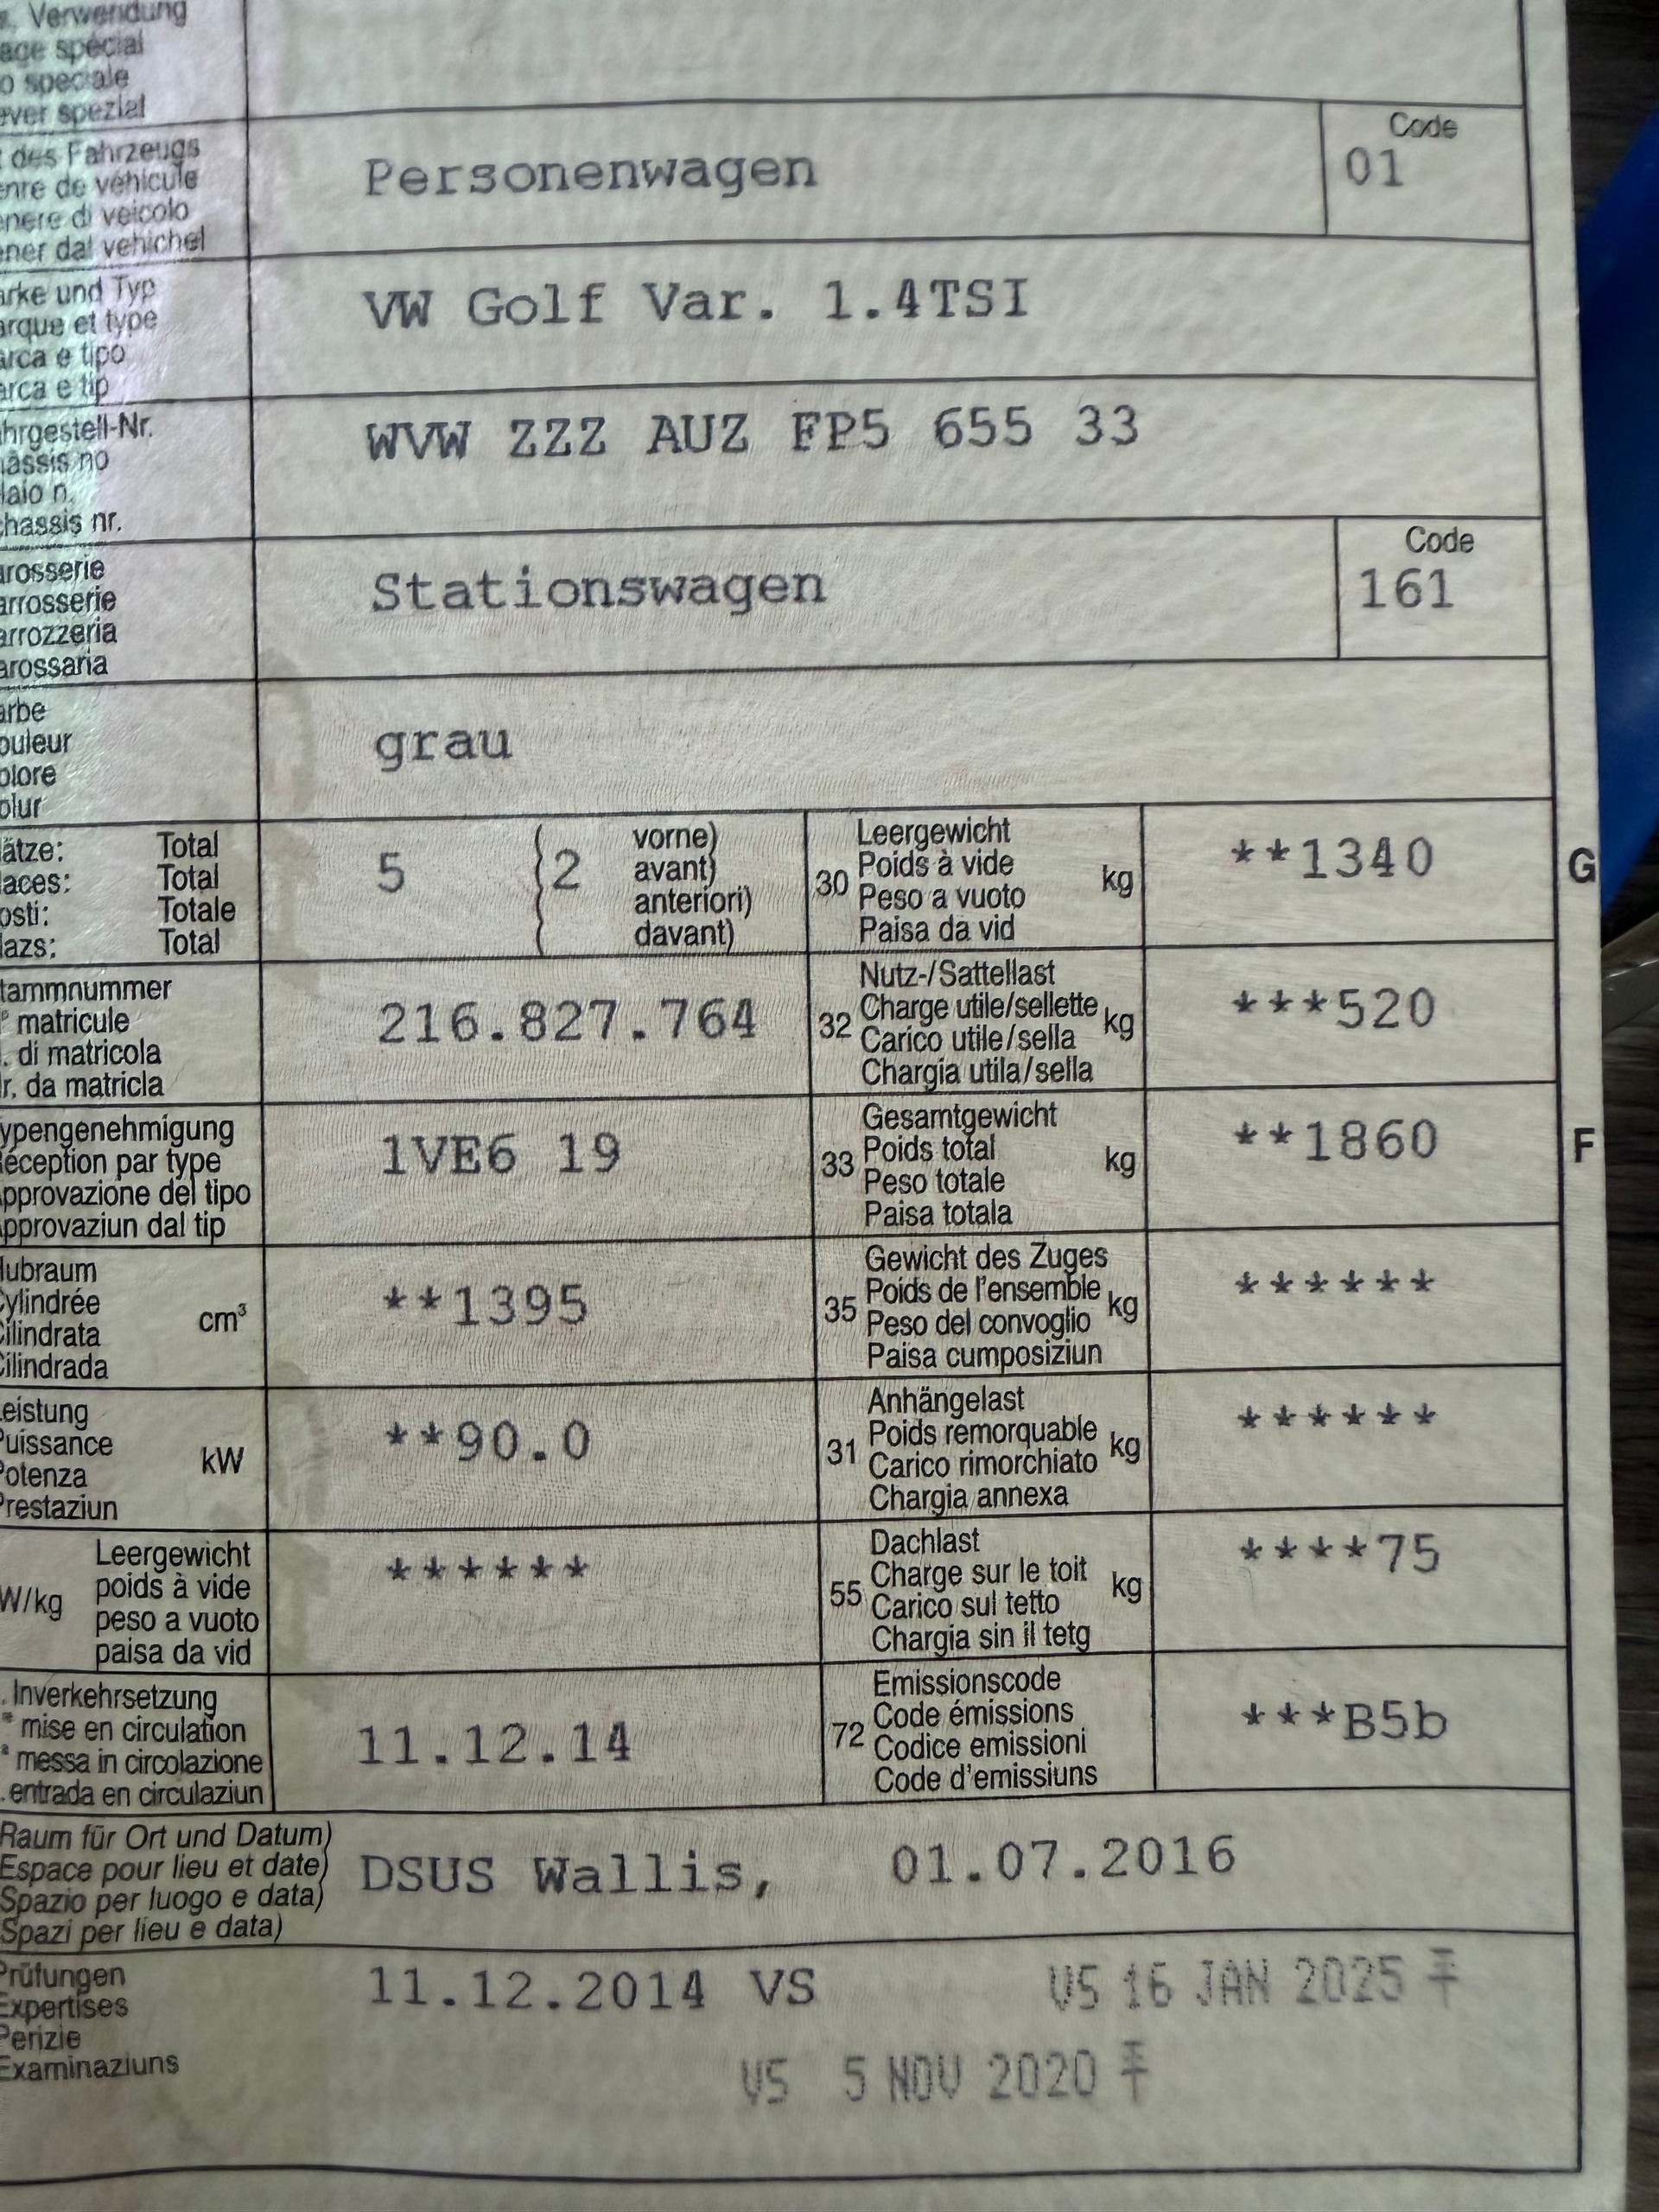 Verwendung
age spécial
o speciale
ever spezial
des Fahrzeugs
enre de véhicule
enere di veicolo
ener dal vehichel
Personenwagen
Code
01
arke und Typ
arque et type
arca e tipo
arca e tip
VW Golf Var. 1.4TSI
ahrgestell-Nr.
hâssis no
laio n.
chassis nr.
WVW ZZZ AUZ FP5 655 33
arosserie
arrosserie
arrozzeria
arossaria
Stationswagen
Code
161
arbe
ouleur
olore
olur
grau
ätze: Total
laces: Total
osti: Totale
lazs: Total
5 { 2
vorne)
avant)
anteriori)
davant)
30
Leergewicht
Poids à vide
Peso a vuoto
Paisa da vid
kg
**1340
G
tammnummer
° matricule
. di matricola
r. da matricla
216.827.764
32
Nutz-/Sattellast
Charge utile/sellette
Carico utile/sella
Chargia utila/sella
kg
***520
ypengenehmigung
éception par type
pprovazione del tipo
pprovaziun dal tip
1VE6 19
33
Gesamtgewicht
Poids total
Peso totale
Paisa totala
kg
**1860
F
Hubraum
Cylindrée
Cilindrata
Cilindrada
cm³
**1395
35
Gewicht des Zuges
Poids de l'ensemble
Peso del convoglio
Paisa cumposiziun
kg
******
Leistung
Puissance
Potenza
Prestaziun
kW
**90.0
31
Anhängelast
Poids remorquable
Carico rimorchiato
Chargia annexa
kg
******
W/kg
Leergewicht
poids à vide
peso a vuoto
paisa da vid
******
55
Dachlast
Charge sur le toit
Carico sul tetto
Chargia sin il tetg
kg
****75
. Inverkehrsetzung
mise en circulation
messa in circolazione
. entrada en circulaziun
11.12.14
72
Emissionscode
Code émissions
Codice emissioni
Code d'emissiuns
***B5b
Raum für Ort und Datum)
Espace pour lieu et date)
Spazio per luogo e data)
Spazi per lieu e data)
DSUS Wallis, 01.07.2016
Prüfungen
Expertises
Perizie
Examinaziuns
11.12.2014 VS
VS 16 JAN 2025
VS 5 NOV 2020